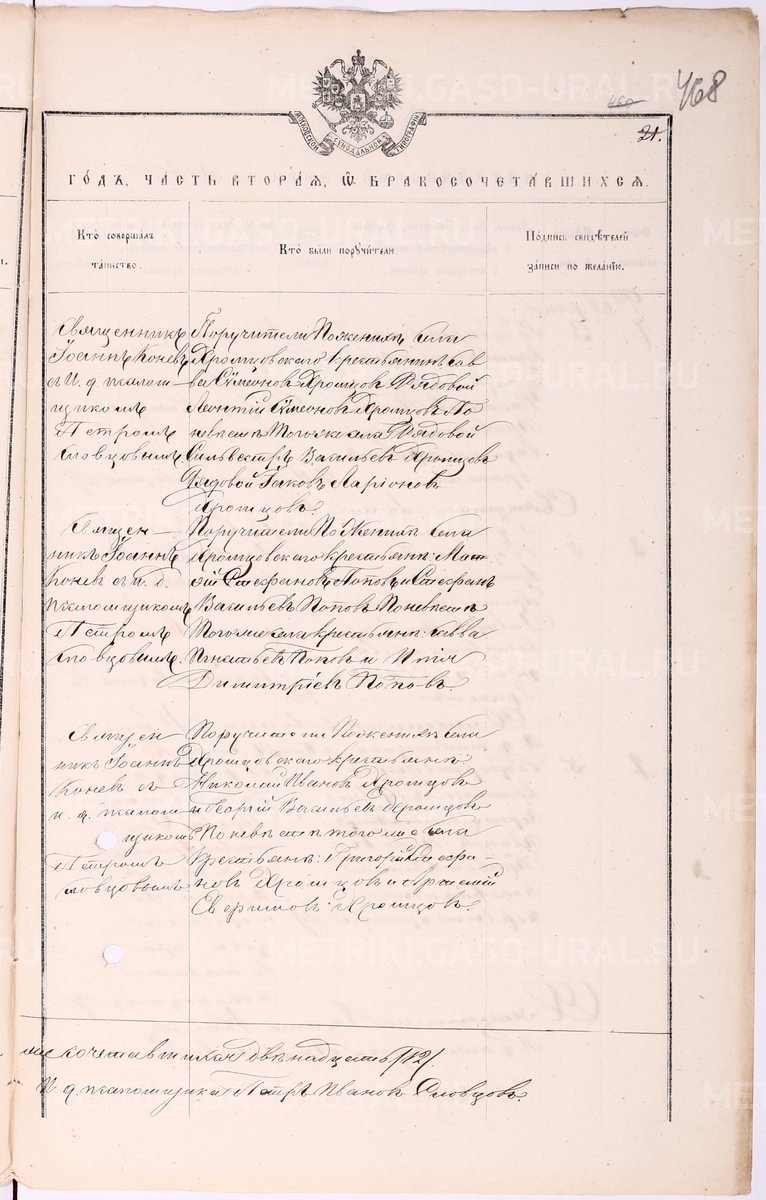 468
460
21.
МОСКОВСКОЙ СѴНОДАЛЬНОЙ ТИПОГРАФІИ
ГОДЪ, ЧАСТЬ ВТОРАЯ, Ѡ БРАКОСОЧЕТАВШИХСЯ.
Кто совершалъ таинство.
Кто были поручители.
Подпись свидѣтелей записи по желанію.
Священникъ
Іоаннъ Коневъ
съ И. д. псалом
щикомъ
Петромъ
Словцовымъ
Поручители По женихѣ: села
Хромцовскаго крестьянинъ Сав
ва Сѵмеоновъ Хромцовъ Рядовой
Леонтій Сѵмеоновъ Хромцовъ По
невѣстѣ Того же села Рядовой
Сильвестръ Васильевъ Хромцовъ
Рядовой Іаковъ Ларіоновъ
Хромцовъ.
Священ
никъ Іоаннъ
Коневъ съ и. д.
псаломщикомъ
Петромъ
Словцовымъ.
Поручители По Женихѣ села
Хромцовскаго крестьян:
Стефановъ Поповъ и Стефанъ
Васильевъ Поповъ По невѣстѣ
Того же села крестьян: Савва
Игнатьевъ Поповъ и Илія
Димитріевъ Поповъ.
Священ
никъ Іоаннъ
Коневъ съ
и. д. псалом
щикомъ
Петромъ
Словцовымъ
Поручители По женихѣ села
Хромцовскаго крестьяне
Николай Ивановъ Хромцовъ
и Георгій Васильевъ Хромцовъ
По невѣстѣ того же села
Крестьяне: Григорій
новъ Хромцовъ и Арсеній
Хромцовъ.
сочетавшихся двѣнадцать /12/.
И. д. псаломщика Петръ Ивановъ Словцовъ.
METRIKI.GASO-URAL.RU